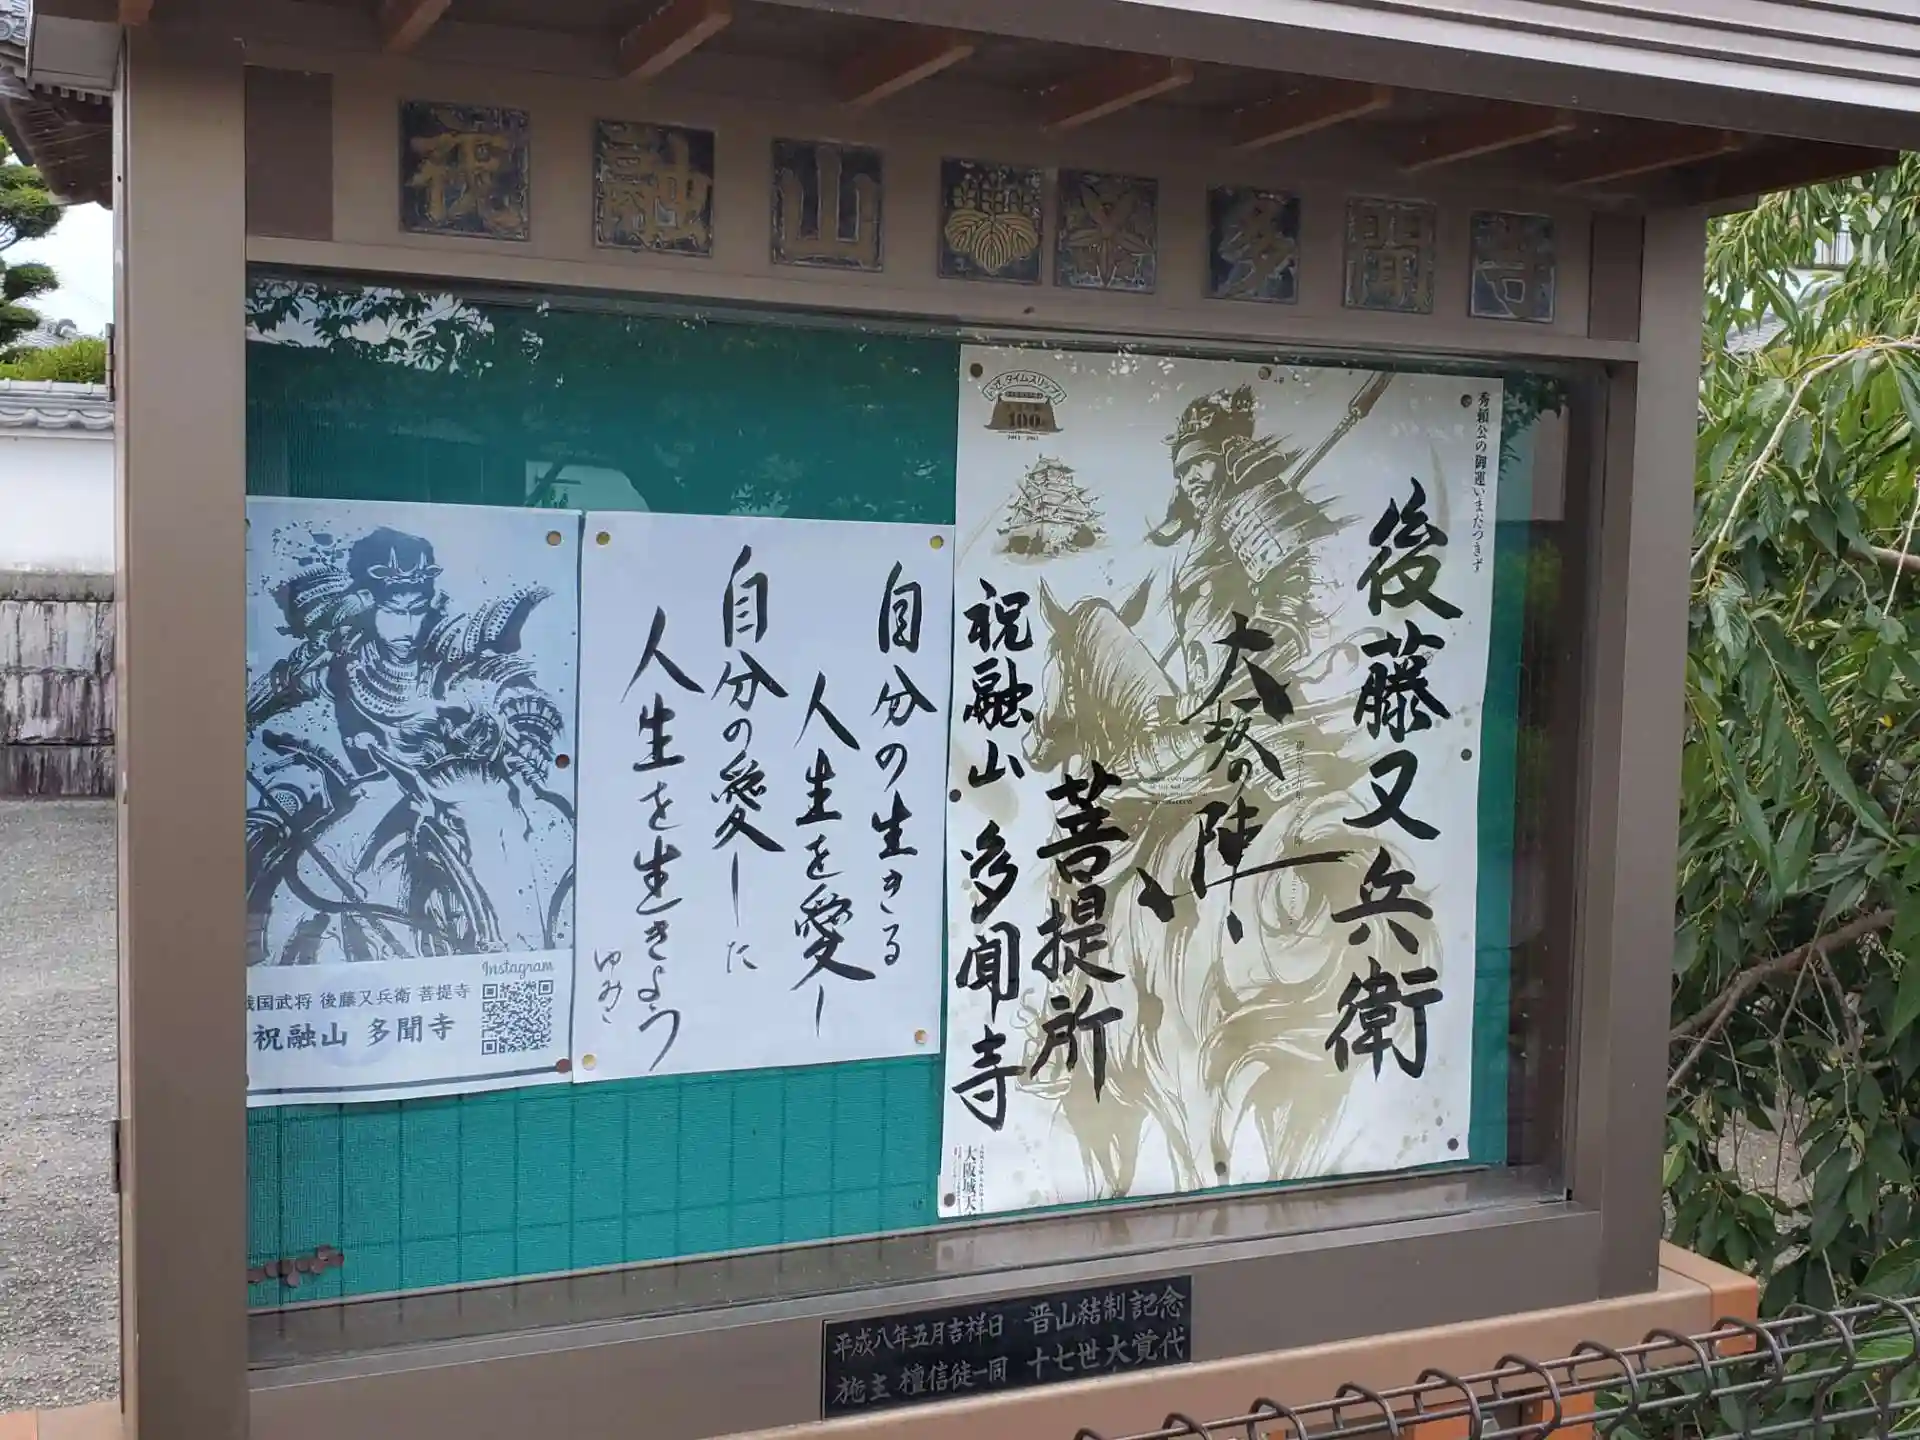 祝融山 多聞寺
いざ、タイムスリップ!
400
秀頼公の御運いまだつきず
後藤又兵衛
大坂の陣
菩提所
祝融山 多聞寺
大阪城天
自分の生きる
人生を愛し
自分の愛した
人生を生きよう
Instagram
戦国武将 後藤又兵衛 菩提寺
祝融山 多聞寺
平成八年五月吉祥日 晋山結制記念
施主 檀信徒一同 十七世大覚代